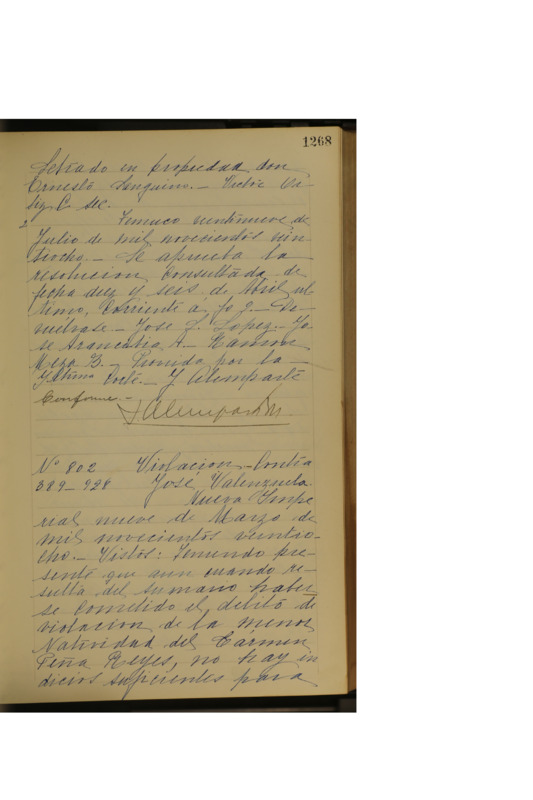 1268
Letrado en propiedad don
Ernesto Sanguino.- Victor Or-
tiz C. sec.
2 Temuco veintinueve de
Julio de mil novecientos vein
tiocho.- Se aprueba la
resolucion consultada de
fecha diez y seis de Abril ul
timo, corriente á fo 7.- De-
vuélvase.- Jose L. Lopez.- Jo
se Arancibia A.- Ramon
Meza B.- Proveido por la
Iltma Corte.- J Alemparte
Conforme.-
J Alemparte
No 802 Violacion - Contra
389-928 José Valenzuela.
Nueva Impe
rial nueve de Marzo de
mil novecientos veintio-
cho.- Vistos: Teniendo pre-
sente que aun cuando re-
sulta del sumario haber
se cometido el delito de
violacion de la menor
Natividad del Cármen
Peña Reyes, no hay in
dicios suficientes para